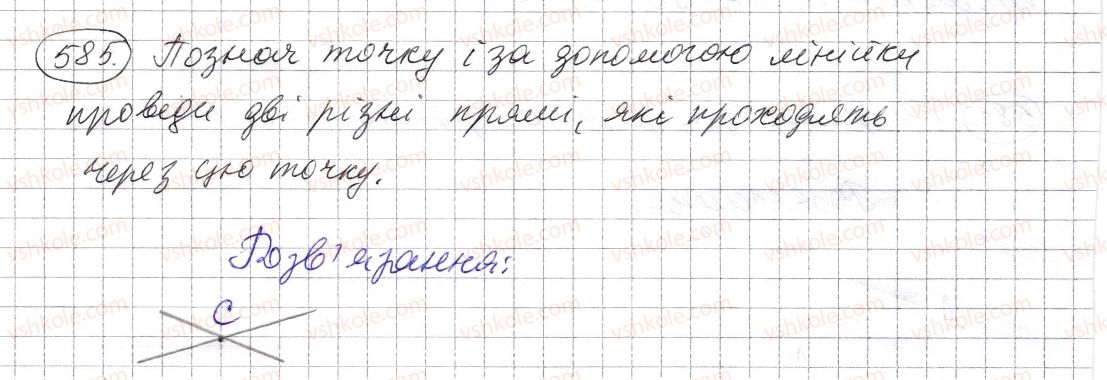 585. Познач точку і за допомогою лінійки
проведи дві різні прямі, які проходять
через цю точку.
Розв'язання:
C